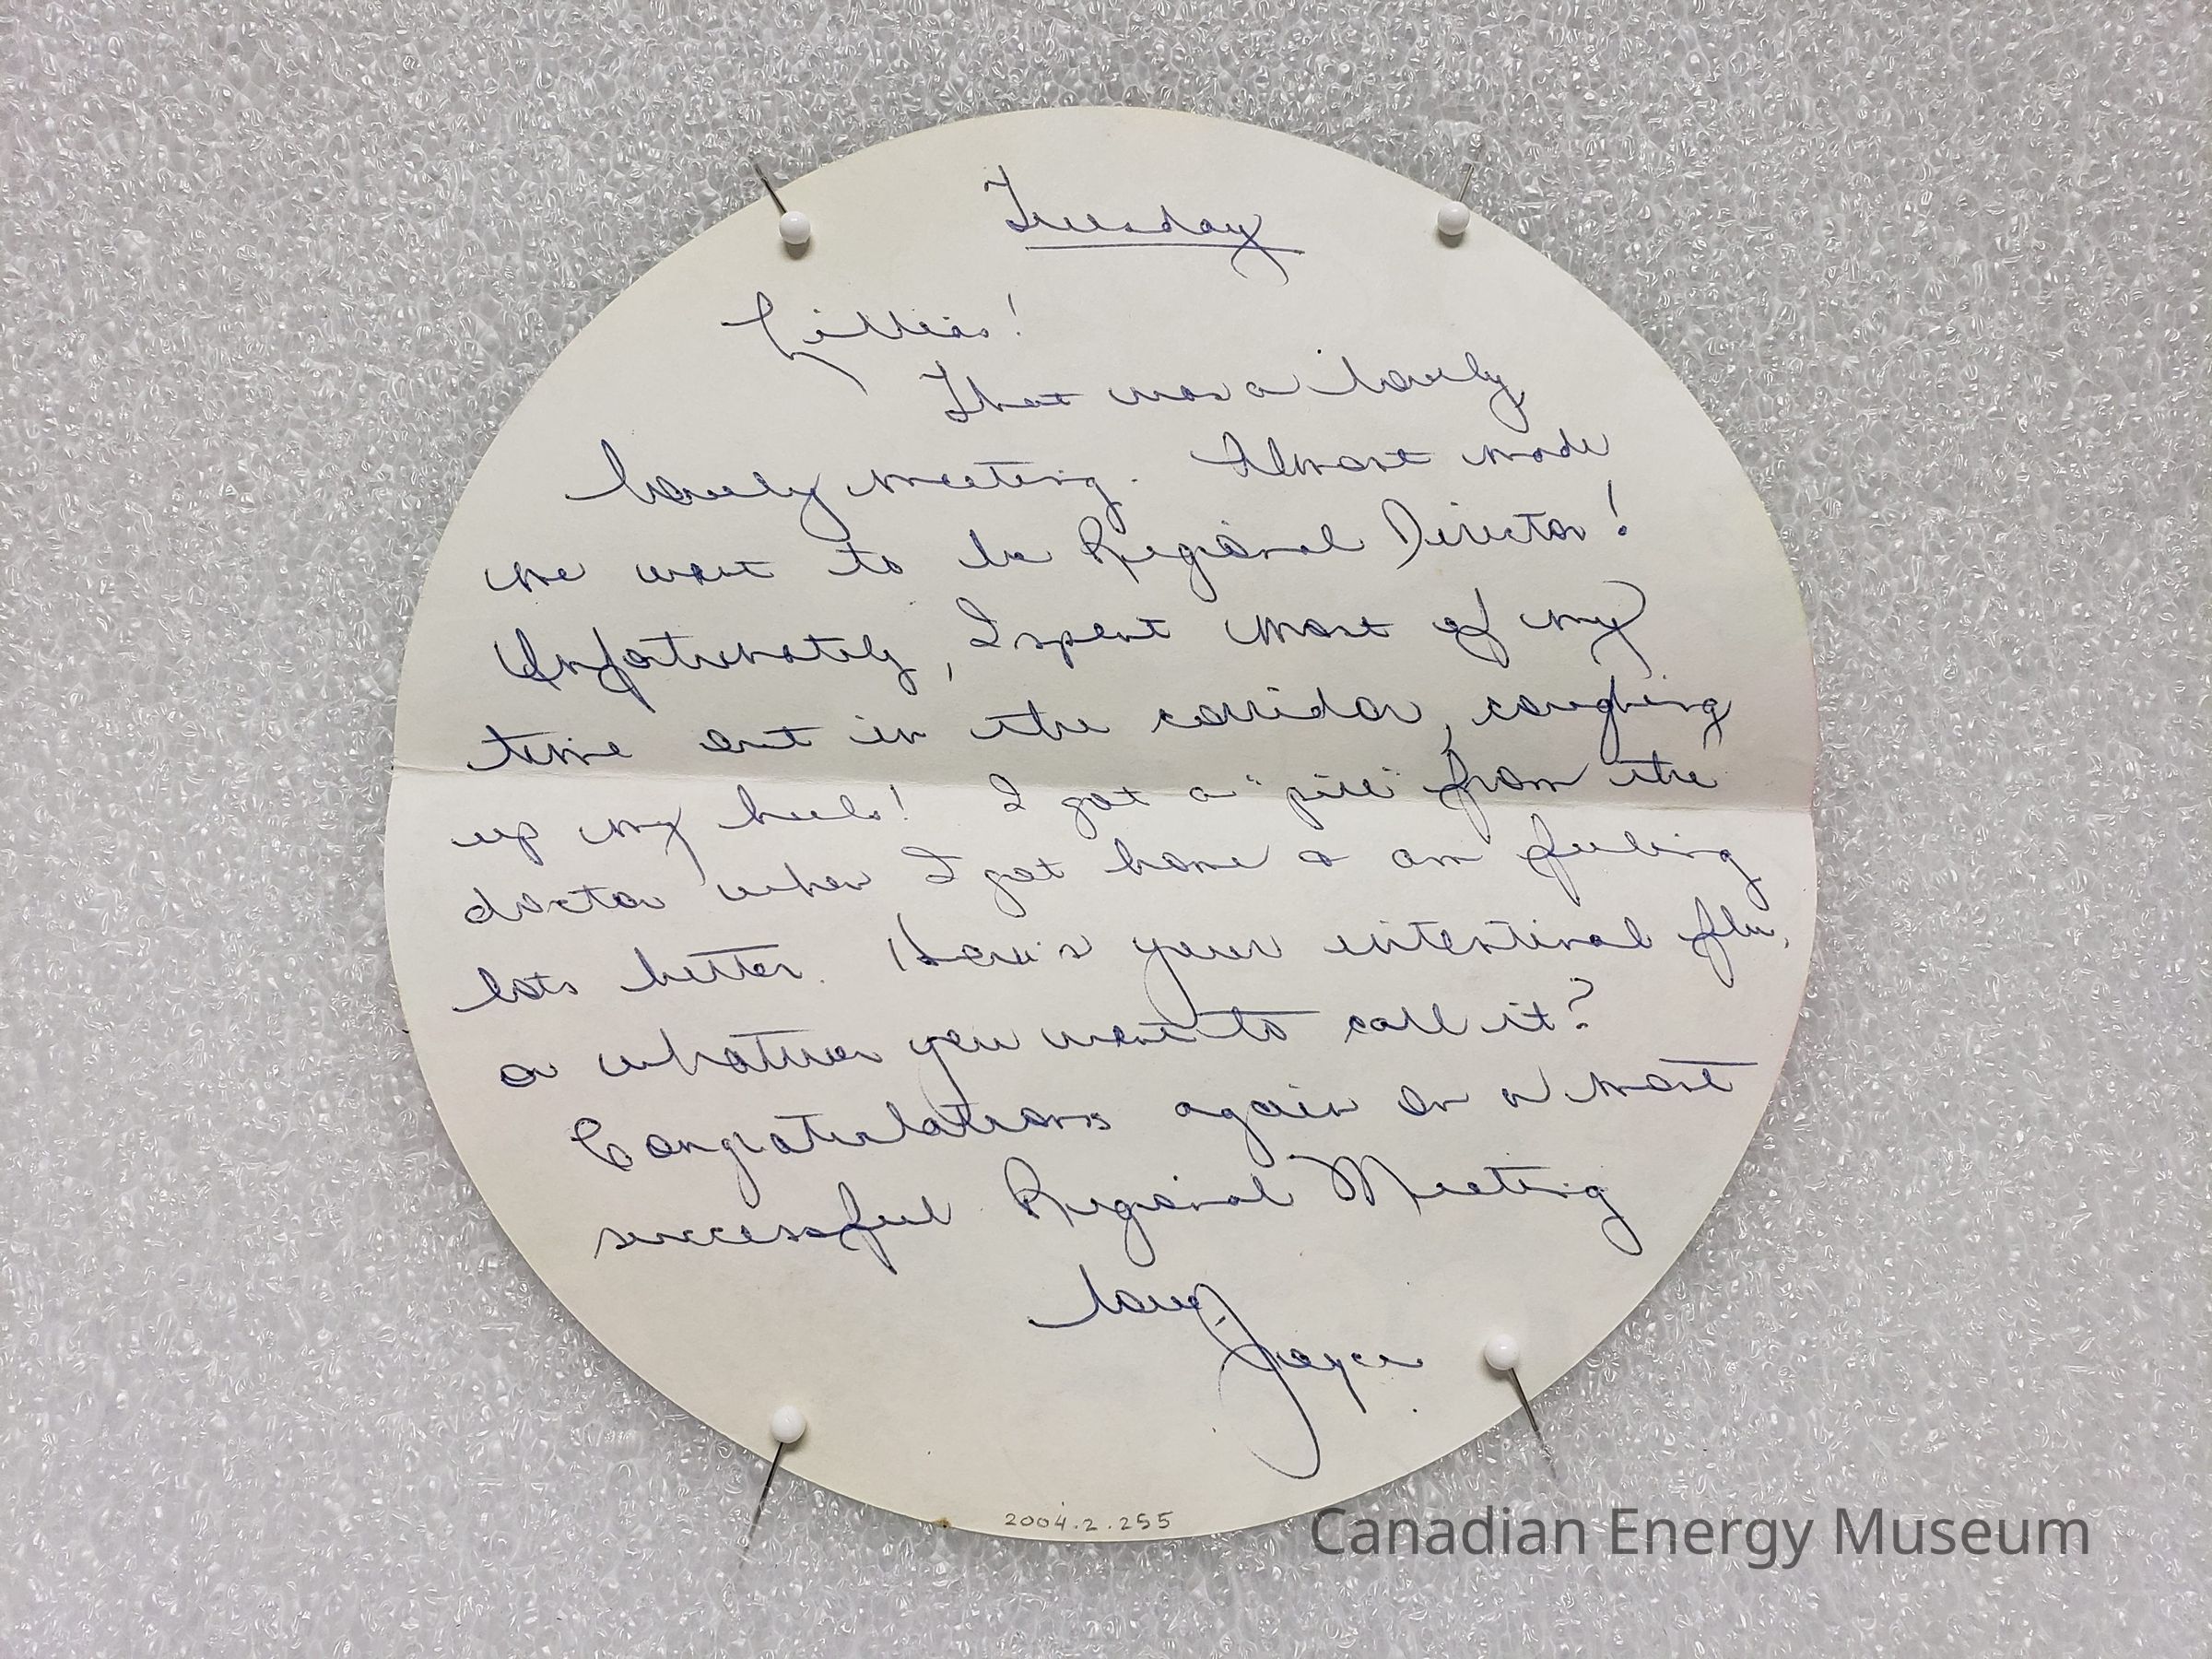 Tuesday
Lillias!
That was a lovely
lovely meeting. Almost made
me want to be Regional Director!
Unfortunately, I spent most of my
time out in the corridor, coughing
up my heels! I got a "pill" from the
doctor when I got home & am feeling
lots better. How's your intestinal flu,
or whatever you want to call it?
Congratulations again on a most
successful Regional Meeting
Love,
Joyce
2004.2.255
Canadian Energy Museum